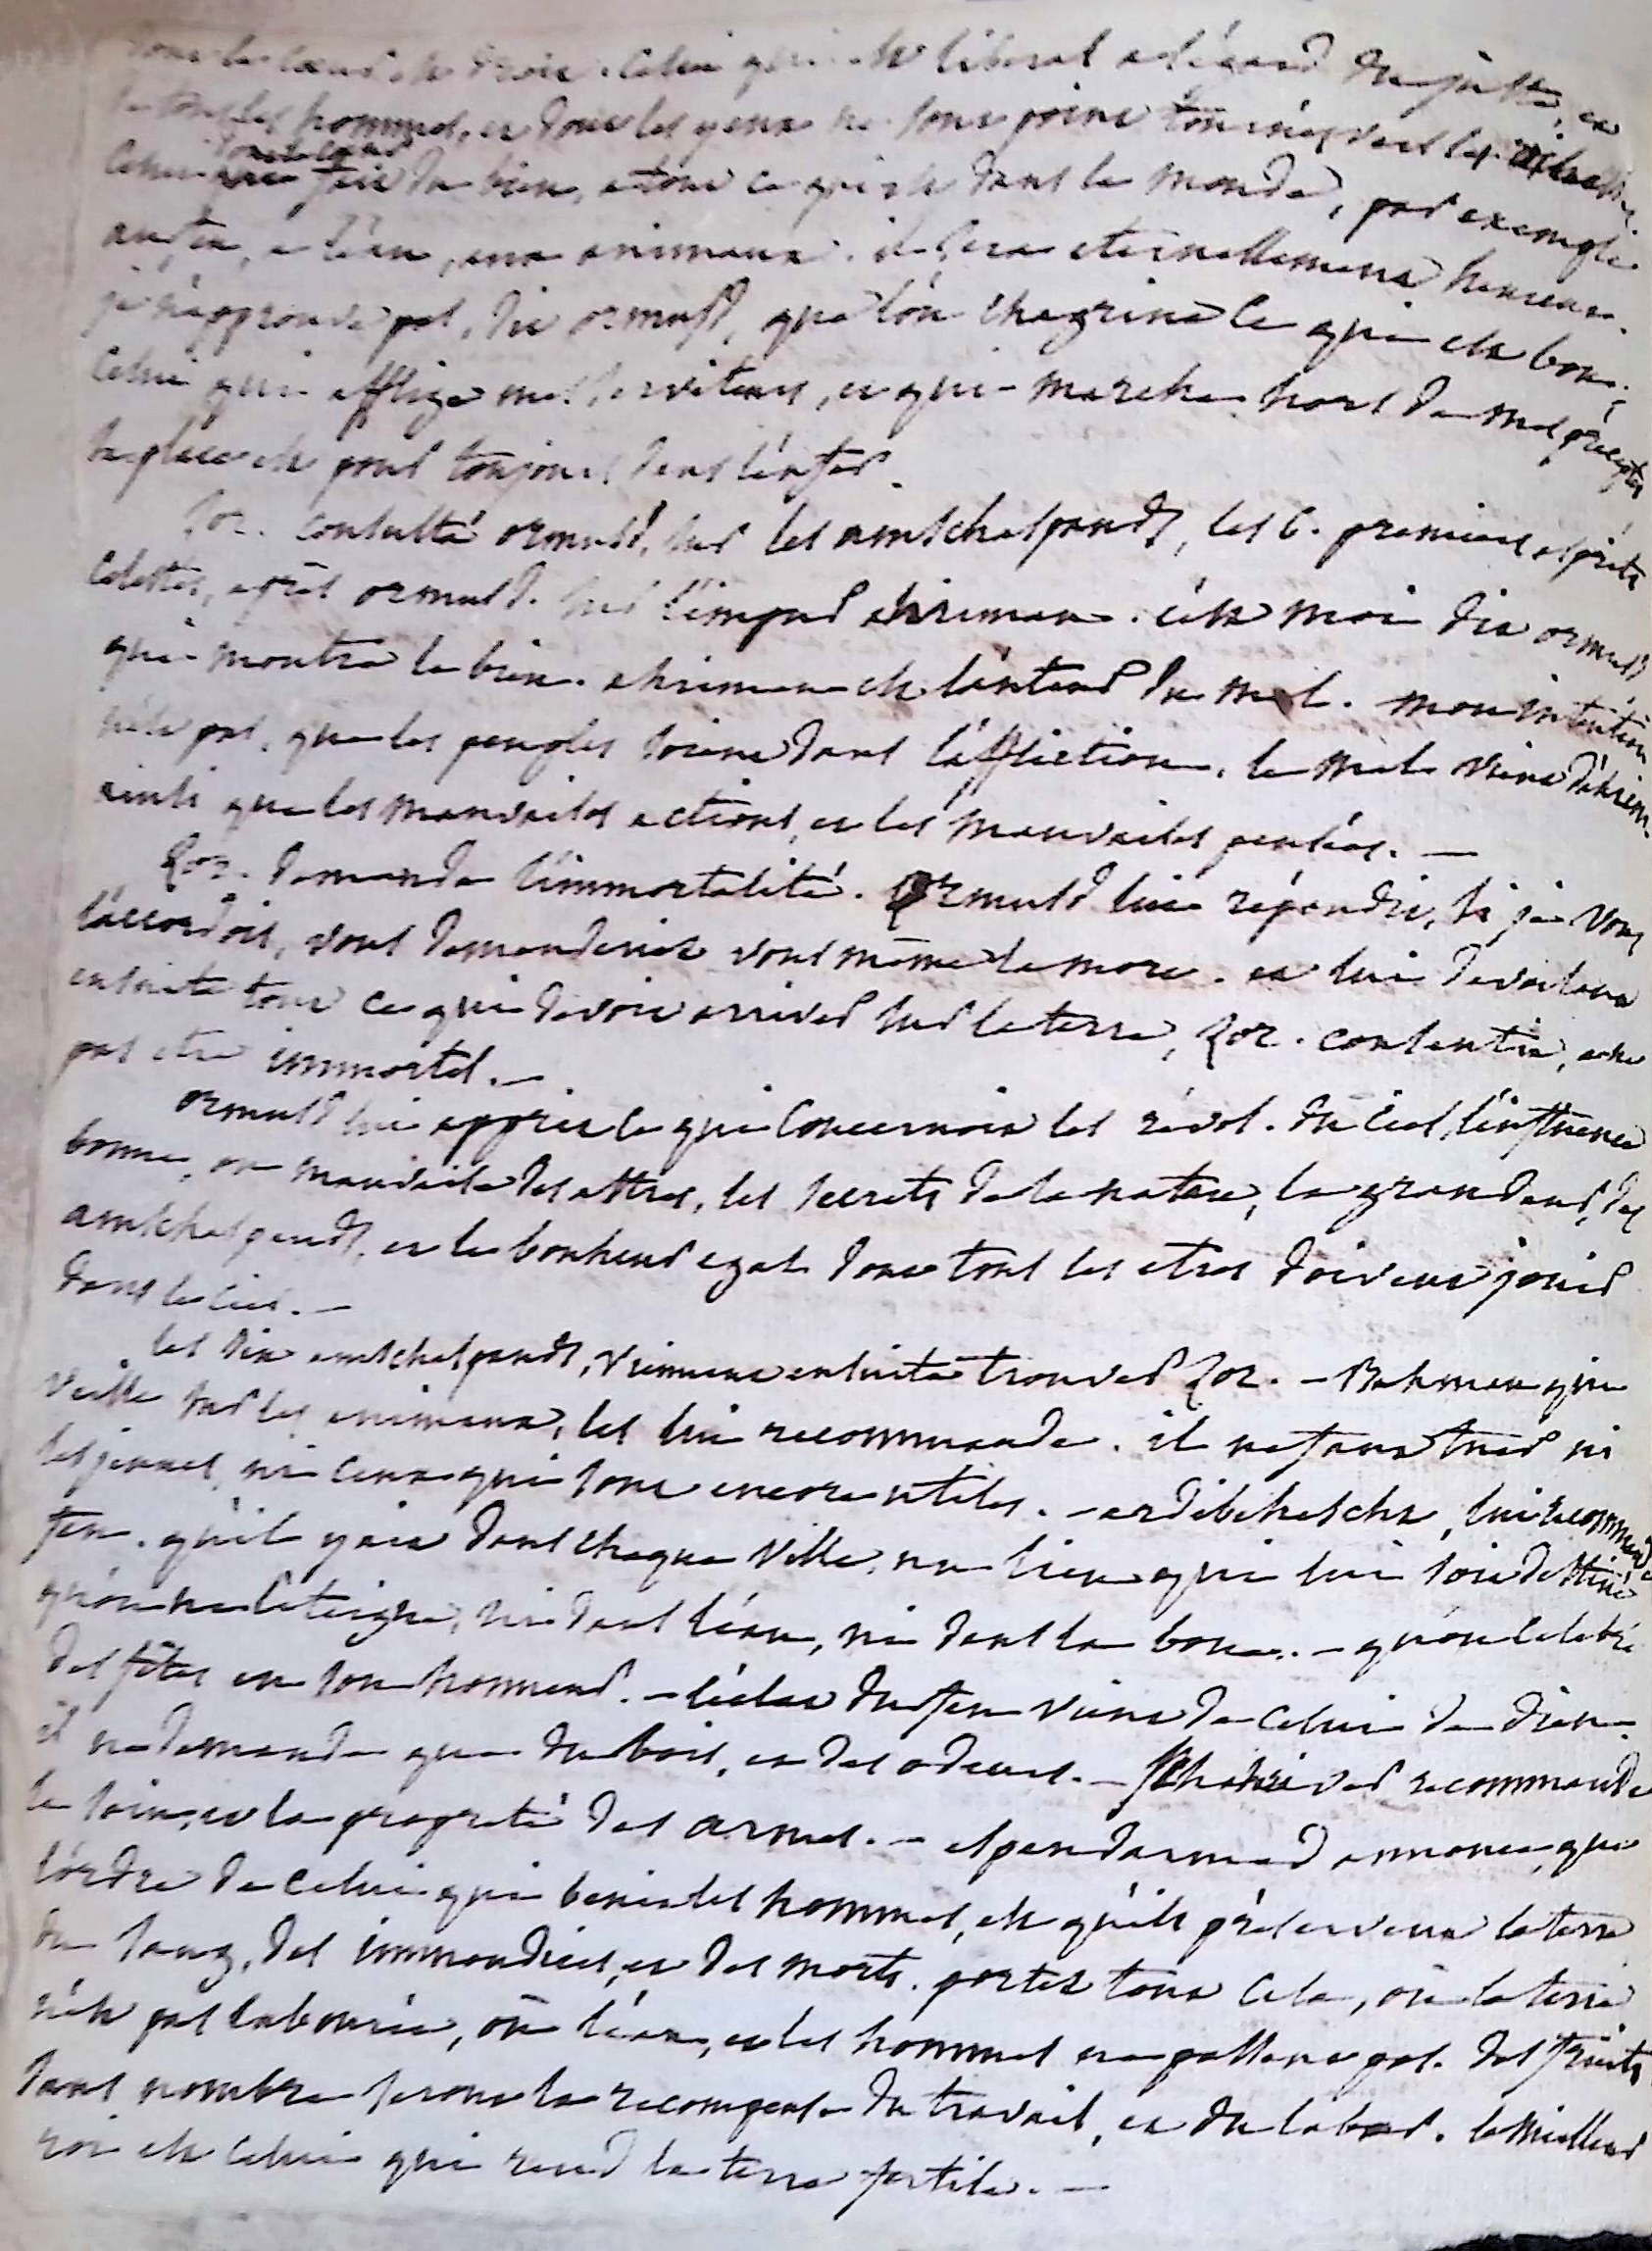 dont le cœur est droit. Celui qui est liberal a l'égard du juste, et
de tous les hommes, et dont les yeux ne sont point tournés vers les richesses.
Celui dont le cœur fait du bien, a tout ce qui est dans le monde, par exemple
au feu, a l'eau, aux animaux. il sera eternellement heureux.
je n'approuve pas, dit ormusd, que l'on chagrine ce qui est bon;
Celui qui afflige mes serviteurs, et qui marche hors de mes préceptes
sa place est pour toujours dans l'enfer.
Zor. consulta ormusd, sur les amschaspands, les 6. premiers esprits
celestes, après ormusd. sur l'impur ahriman. c'est moi dit ormusd
qui montre le bien. ahriman est l'auteur du mal. mon intention
n'est pas, que les peuples soient dans l'affliction. le mal vient d'ahrim.
ainsi que les mauvaises actions, et les mauvaises pensées. —
Zor. demanda l'immortalité. Ormusd lui répondit, si je vous
l'accordois, vous demanderiez vous même la mort. et lui devoilant
ensuite tout ce qui devoit arriver sur la terre, Zor. consentit, a ne
pas etre immortel. —
ormusd lui apprit ce qui concernoit les révol. du ciel, l'influence
bonne, ou mauvaise des astres, les secrets de la nature, la grandeur, des
amschaspands, et le bonheur egal dont tous les etres doivent jouir
dans le ciel. —
les dix amschaspands, viennent ensuite trouver Zor. — Bahman qui
veille sur les animaux, les lui recommande. il ne faut tuer ni
les jeunes, ni ceux qui sont encore utiles. — ardibehescht, lui recommande le
feu. qu'il y ait dans chaque ville, un lieu qui lui soit destiné
qu'on ne l'eteigne, ni dans l'eau, ni dans la boue. — qu'on celebre
des fêtes en son honneur. — l'éclat du feu vient de celui de dieu.
il ne demande que du bois, et des odeurs. — Schahriver recommande
le soin, et la propreté des armes. — espendarmad annonce, que
l'ordre de celui qui benit les hommes, est qu'ils préservent la terre
du sang, des immondices, et des morts. portez tout cela, où la terre
n'est pas labourée, où l'eau, et les hommes ne passent pas. des fruits
sans nombre seront la recompense du travail, et du labour. le meilleur
roi est celui qui rend la terre fertile. —